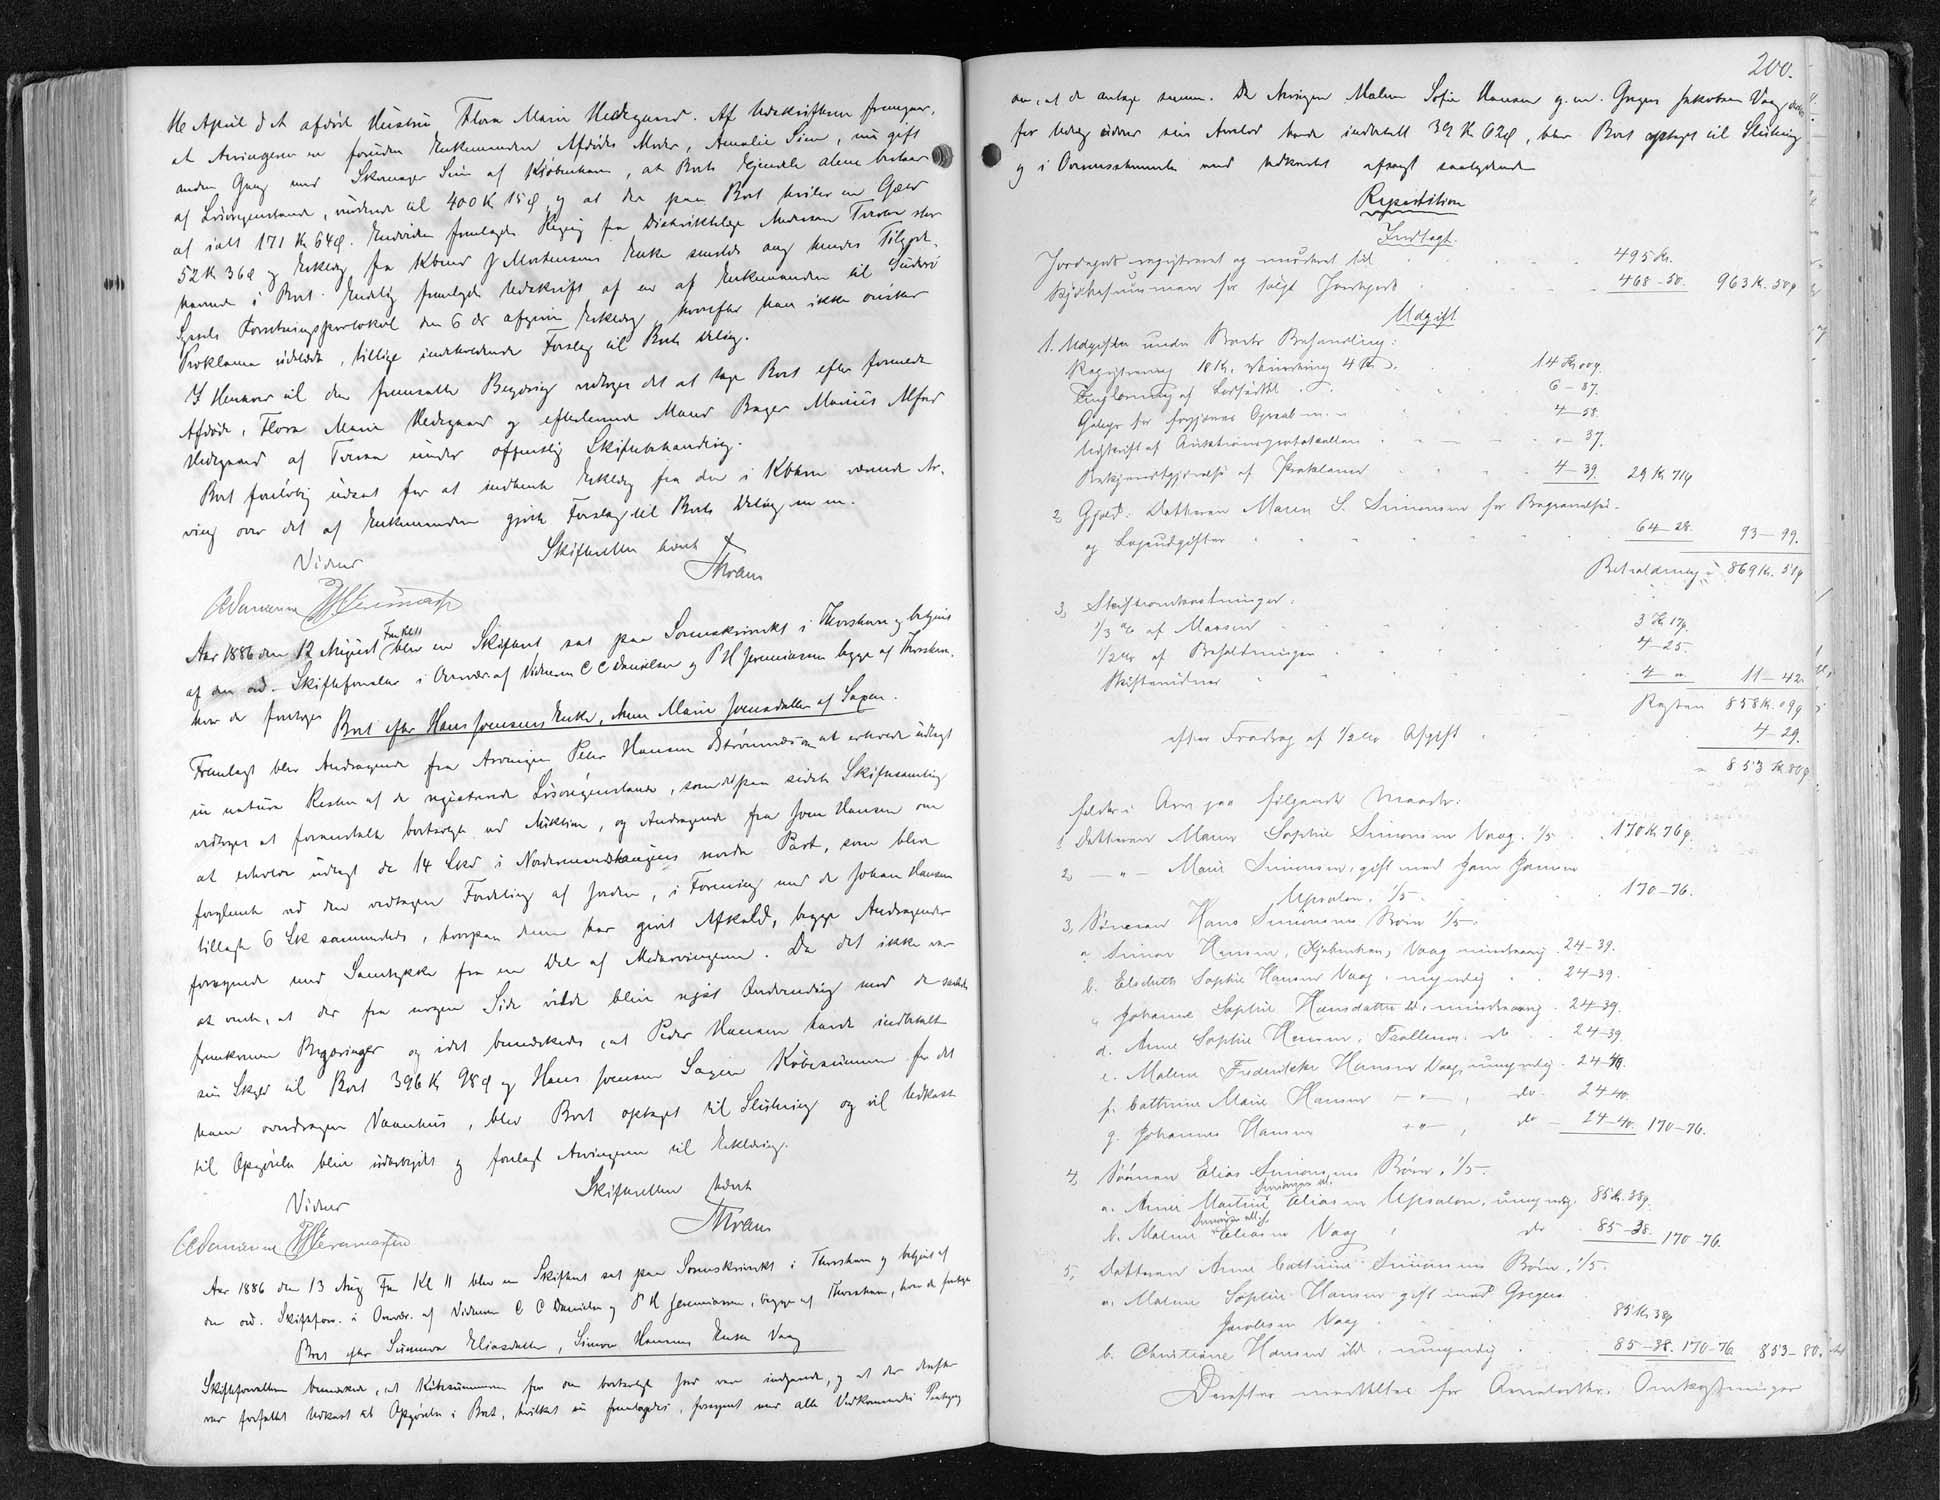 16 April d A afdøde Hustru Flora Marie Hedegaard. Af Udskriften fremgaar,
at Arvingerne er foruden Enkemanden Afdødes Moder, Amalie Sinn, nu gift
anden Gang med Skomager Sinn af Kjøbenhavn, at Boets Ejendele alene bestaar
af Løsøregenstande, vurderede til 400 K 15 Ø, og at der paa Boet hviler en Gæld
af ialt 171 Kr 64 Ø. Endvidere fremlagdes Regning fra Distriktslæge Andersen Tveraa stor
52 K 36 Ø og Erklæring fra Kbmd J Mortensens Enke om hendes Tilgode-
havende i Boet. Endelig fremlagdes Udskrift af en af Enkemanden til Suderø
Syssels Forretningsprotokol den 6 ds afgiven Erklæring, hvorefter han ikke ønsker
Proklama udstedt, tillige indeholdende Forslag til Boets Deling.
I Henhold til den fremsatte Begæring vedtoges det at tage Boet efter fornævnte
Afdøde, Flora Marie Hedegaard og efterlevende Mand Bager Marius Alfred
Hedegaard af Tveraa under offentlig Skiftebehandling.
Boet foreløbig udsat for at indhente Erklæring fra den i Kbhvn værende Ar-
ving over det af Enkemanden gjorte Forslag til Boets Deling m m.
Skifteretten hævet
Vidner
CCDanielsen PHJeremiassen
Aar 1886 den 12 August Fm Kl 11 blev en Skifteret sat paa Sorenskriveriet i Thorshavn og betjent
af den ord. Skifteforvalter i Overvær af Vidnerne C C Danielsen og P H Jeremiassen begge af Thorshavn,
hvor da foretoges Boet efter Hans Joensens Enke, Anne Marie Joensdatter af Saxen.
Fremlagt blev Andragende fra Arvingen Peder Hansen Strømnæs om at erholde udlagt
in natura Resten af de registrerede Løsøregenstande, som det paa sidste Skiftesamling
vedtoges at foranstalte bortsolgte ved Auktion, og Andragende fra Joen Hansen om
at erholde udlagt de 14 Lkd i Nordermandshaugens nordre Part, som blev
forglemte ved den vedtagne Fordeling af Jorden, i Forening med de Johan Hansen
tillagte 6 Lk sammesteds, hvorpaa denne har givet Afkald, begge Andragender
forsynede med Samtykke fra en Del af Medarvingerne. Da det ikke var
at vente, at der fra nogen Side vilde blive rejst Indvending mod de saaledes
fremkomne Begæringer og idet bemærkedes, at Peder Hansen havde indbetalt
sin Skyld til Boet 396 K 98 Ø og Hans Joensen Saxen Købesummen for det
ham overdragne Vaanhus, blev Boet optaget til Slutning og vil Udkast
til Opgørelse blive udarbejdet og forelagt Arvingerne til Erklæring.
Skifteretten hævet
Vidner
CCDanielsen PHJeremiassen
Aar 1886 den 13 Aug Fm Kl 11 blev en Skifteret sat paa Sorenskriveriet i Thorshavn og betjent af
den ord. Skifteforv. i Overvær. af Vidnerne C C Danielsen og P H Jeremiassen, begge af Thorshavn, hvor da foretoges
Boet efter Sunneva Eliasdatter, Simon Hansens Enke Vaag
Skifteforvalteren bemærkede, at Købesummen for den bortsolgte Jord var indgaaet, og at der derefter
var forfattet Udkast til Opgørelse i Boet, hvilket nu fremlagdes, forsynet med alle Vedkommendes Paategning
200.
om, at de antage samme. Da Arvingen Malene Sofie Hansen g. m. Gregers Jakobsen Vaag
for Udlæg udover sin Arvelod havde indbetalt 39 Kr 62 Ø, blev Boet optaget til Slutning
og i Overensstemmelse med Udkastet afsagt saalydende
Repartition
Indtægt.
Jordegods registreret og vurderet til 495 Kr.
Kjøbesummen for solgt Jordegods 468-50. 963 K. 50 ø
Udgift
1. Udgifter under Boets Behandling:
Registrering 10 Kr, Vurdering 4 Kr 14 Kr 00 ø.
Tinglæsning af 6-37.
Gebyr for 4-58.
Udskrift af Auktionsprotokollen "-37.
Bekjendtgjørelse af Proklama 4-39. 29 Kr 71 ø
2, Gjæld: Datteren Maren S. Simonsen for Begravelses-
og 64-28. 93-99.
Beholdning 869 Kr. 51 ø
3, Skifteomkostninger:
1/3 % af Massen 3 Kr 17 ø.
1/2 % af Beholdningen 4-25.
Skiftevidner 4 " 11-42.
Resten 858 Kr. 09 ø
efter Fradrag af 1/2 % Afgift 4-29.
853 Kr. 80 ø
falder i Arv paa følgende Maade:
1 Datteren Maren Sophie Simonsen Vaag. 1/5 170 K 76 ø.
2 — " — Marie Simonsen, gift med Joen Joensen
1/5. 170-76.
3, Sønnen Hans Simonsens Børn 1/5
a. Simon Hansen, (Kjøbenhavn) Vaag mindreaarig. 24-39.
b. Elsebeth Sophie Hansen Vaag, umyndig 24-39.
c. Johanne Sophie Hansdatter ibd, mindreaarig. 24-39.
d. Anne Sophie Hansen, do 24-39.
e. Malene Frederikke Hansen Vaag, umyndig. 24-40.
f. Cathrine Marie Hansen — " —, do. 24-40.
g. Johannes Hansen — " —, do 24-40. 170-76.
4, Sønnen Elias Simonsens Børn, 1/5
a. Anne Martine Eliasen, umyndig. 85 K. 38 ø.
b. Malene Eliasen Vaag, do 85-38. 170-76.
5, Datteren Anne Cathrine Simonsens Børn, 1/5.
a. Malene Sophie Hansen gift med Gregers
Jacobsen Vaag 85 Kr 38 ø
b. Christiane Hansen ibd, umyndig 85-38. 170-76. 853-80.
Derefter meddeltes for Omkostninger